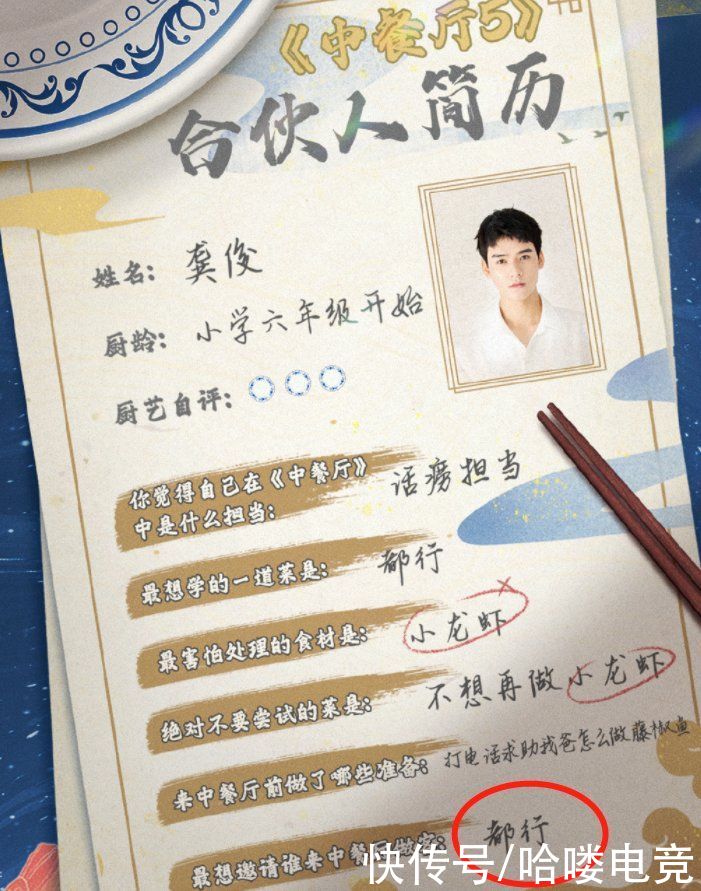 《中餐厅5》
合伙人简历
姓名：龚俊
厨龄：小学六年级开始
厨艺自评：
你觉得自己在《中餐厅》
中是什么担当：话痨担当
最想学的一道菜是：都行
最害怕处理的食材是：小龙虾
绝对不要尝试的菜是：不想再做小龙虾
来中餐厅前做了哪些准备：打电话求助我爸怎么做藤椒鱼
最想邀请谁来中餐厅做客：都行
快传号/哈喽电竞